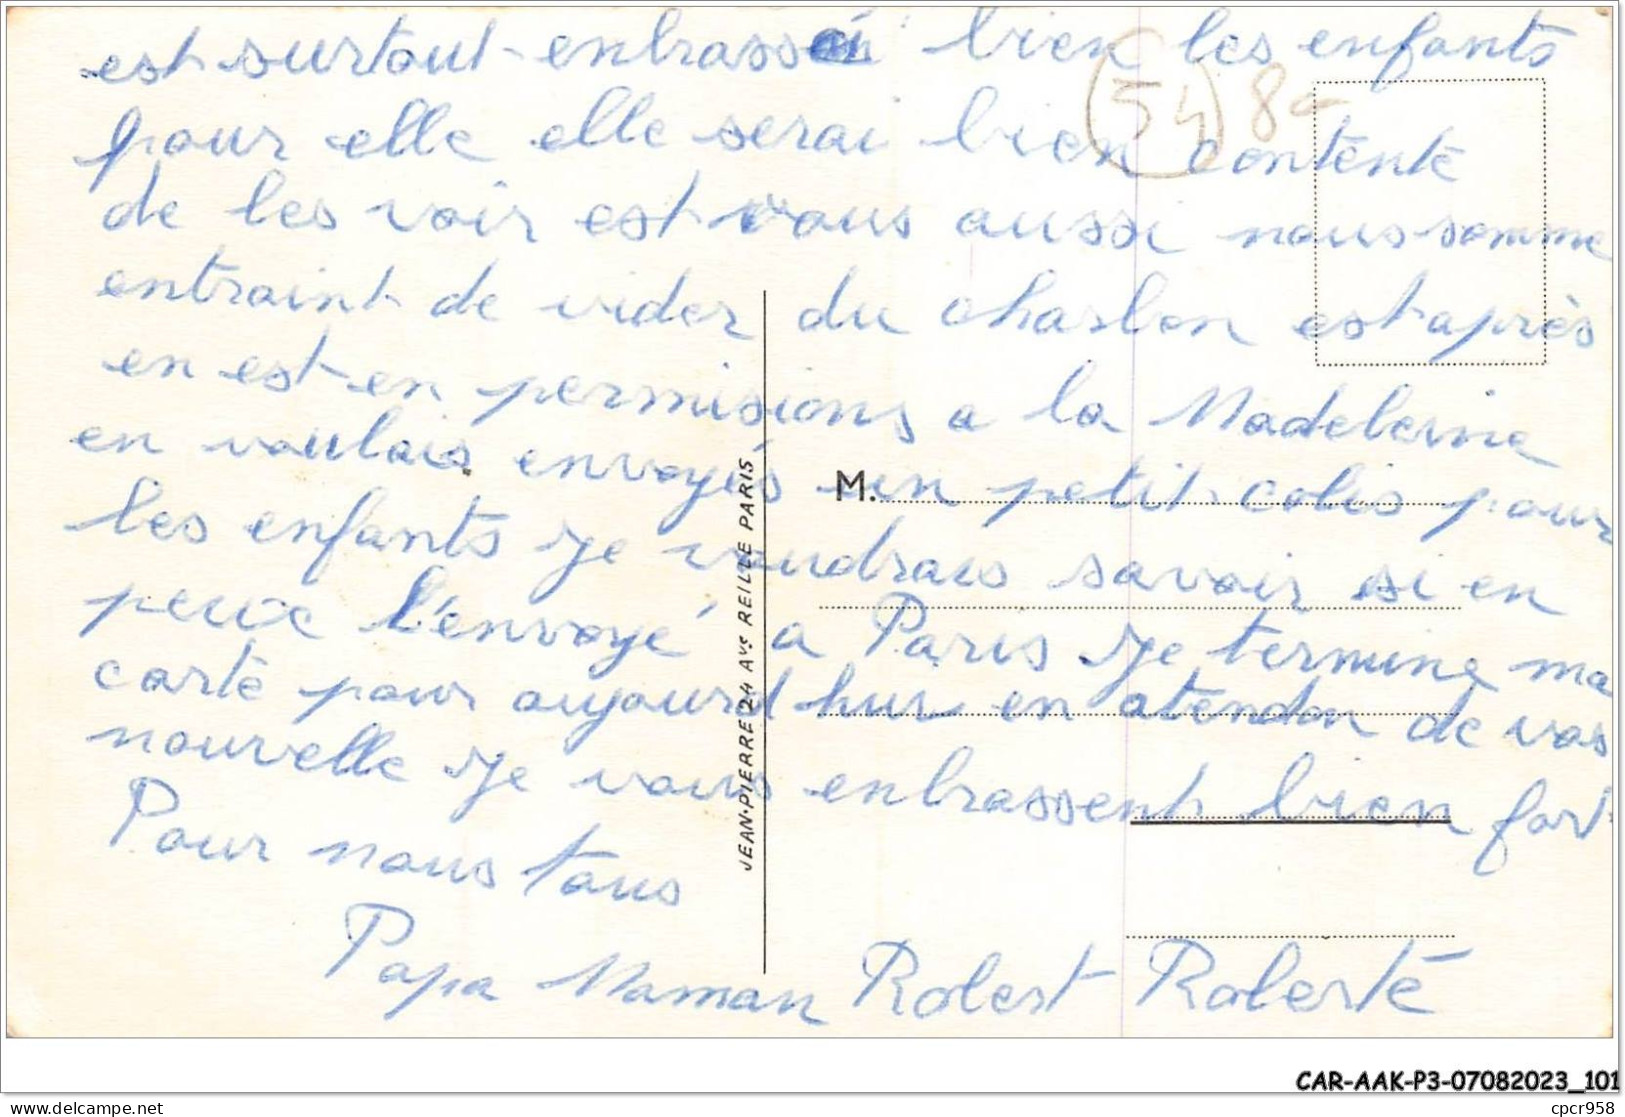 est surtout enbrassé bien les enfants
(54) 8-
pour elle elle serai bien contente
de les voir est vous aussi nous somme
entraint de vider du charbon est après
en est en permisions a la Madeleine
en voulais envoyés un petit colis pour
les enfants je voudrais savoir si en
peux l'envoyé a Paris je termine ma
carte pour aujourd hui en atendon de vos
nouvelle je vous enbrassent bien fort
Pour nous tous
Papa Maman Robert Roberte
M.
JEAN-PIERRE 24 AVE REILLE PARIS
CAR-AAK-P3-07082023_101
delcampe.net
cpcr958